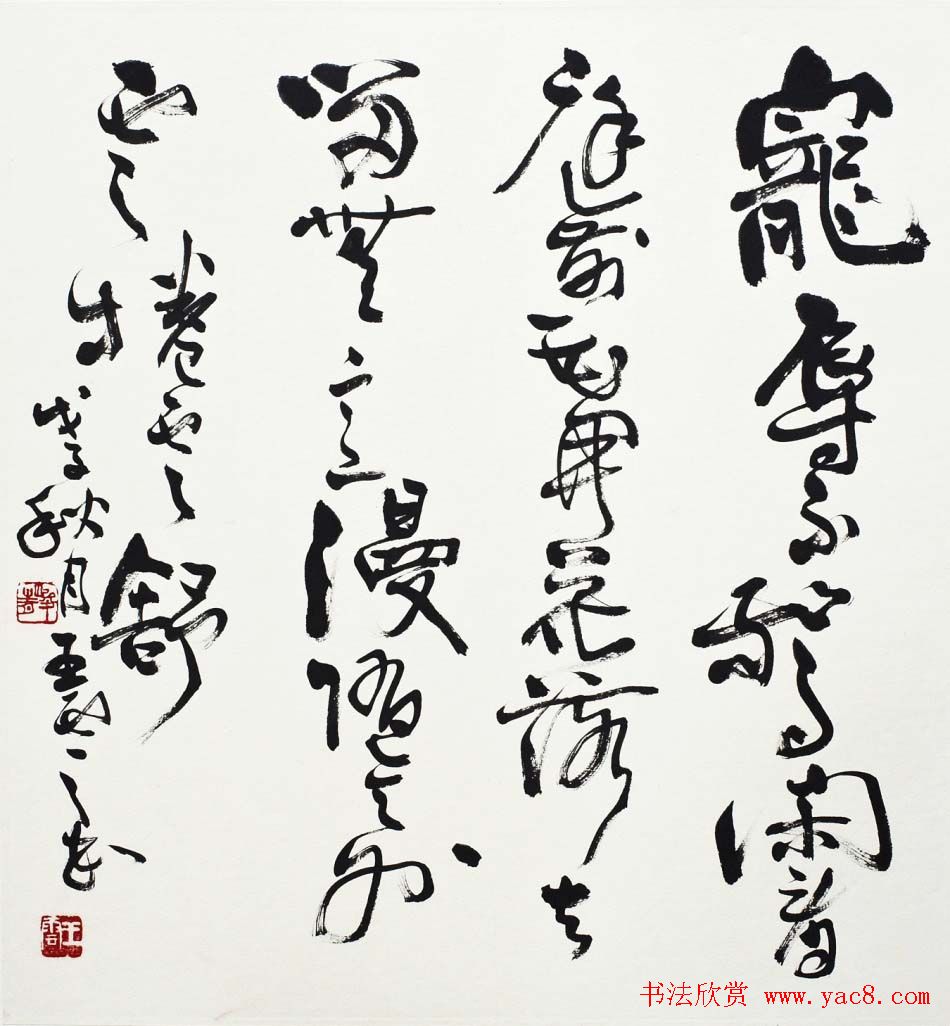 寵辱不驚閑看
庭前花開花落去
留無意漫隨天外
雲卷雲舒
時戊子秋月王雲書
王雲
书法欣赏 www.yac8.com